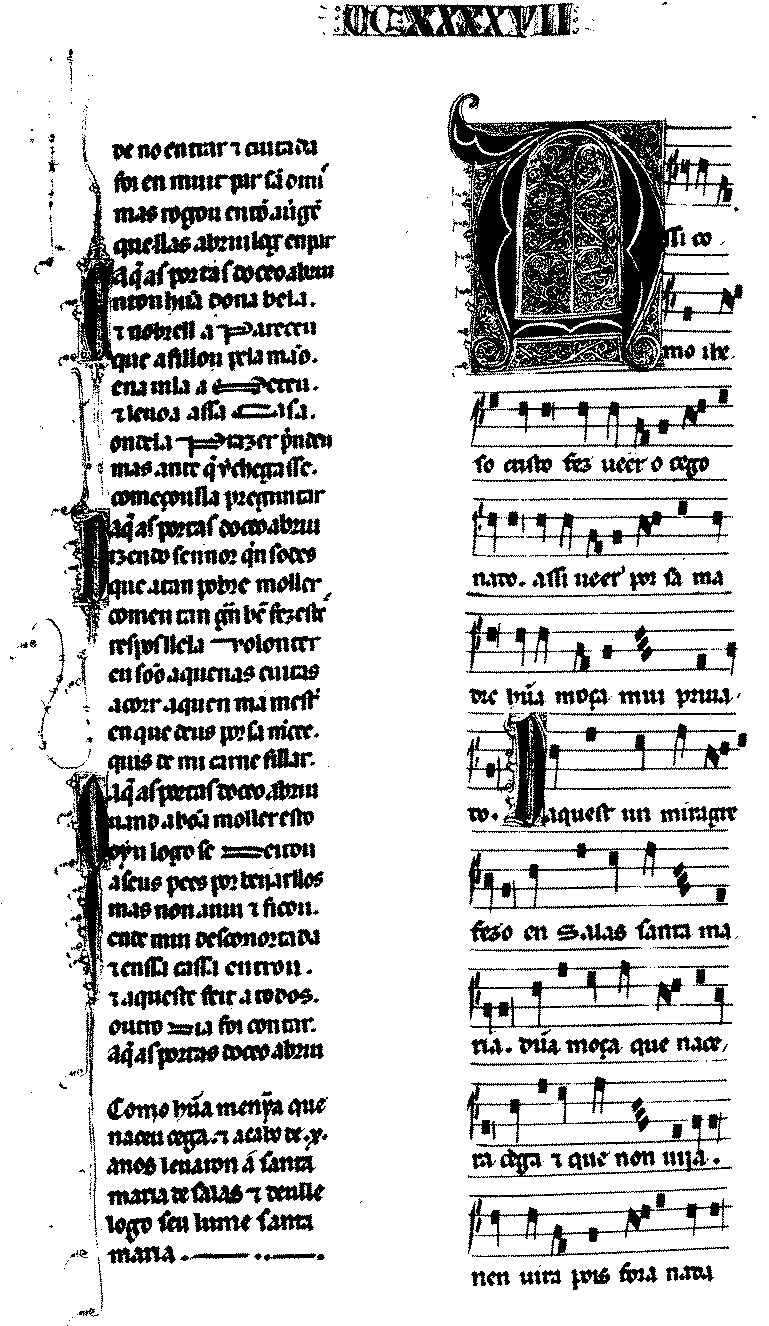 CCXXXXVII
de no entrar ⁊ cuitada
foi en muit' pir sã omi
mas rogou
quellas abriu
Aq̃ as portas do ceo abriu
nton hũa dona bela.
⁊ nobrell a pareceu
que a fillou pela mão.
ena mia a
⁊ leuoa assa casa.
ontela fazer
mas ante q̃ chegasse.
começoulla preguntar
aq̃ as portas do ceo abriu
izendo sennor q̃n sodes
que atan pobre moller
comen tan grã bẽ fezestes
respos llela volonter
en soo aquenas cuitas
acorr aquen ma mest'
en que deus por sa mcee.
quis de mi carne fillar.
aq̃ as portas do ceo abriu
uando aboã moller esto
oyu logo se deitou
a seus pees por beiiarllos
mas non a uiu ⁊ ficou.
ende mui desconortada
⁊ enssa cassa entrou.
⁊ aqueste feit a todos.
outro dia foi contar.
aq̃ as portas do ceo abriu
Como hũa menỹa que
naceu cega. ⁊ acabo de .x.
anos leuaron á santa
maria de salas ⁊ deulle
logo seu lume santa
maria.
Assi co
mo ihe
so cristo fez ueer o cego
nato. assi ueer por sa ma
dre hũa moça mui priua
do. D aquest un miragre
fezo en Salas santa ma
ria. dũa moça que nace
ra cega ⁊ que non uija.
nen uira pois fora nada